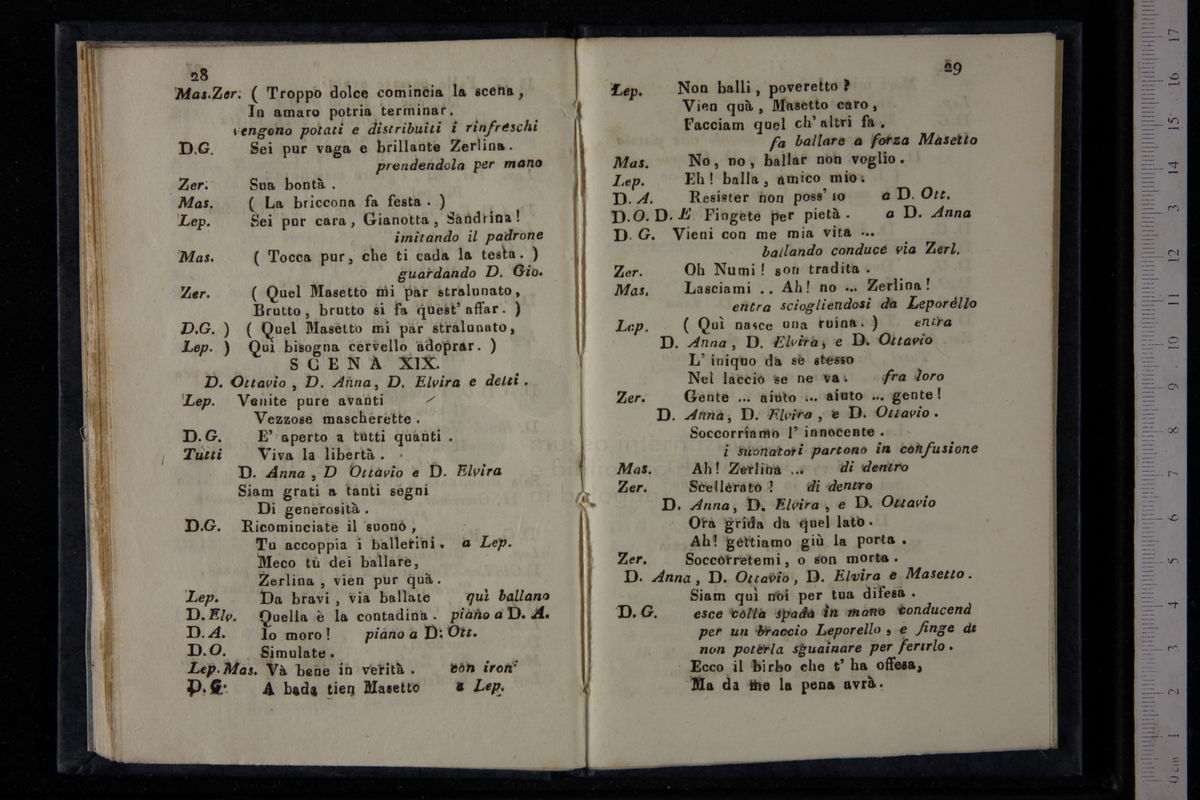 28
Mas.Zer. ( Troppo dolce comincia la scena ,
In amaro potria terminar .
vengono potati e distribuiti i rinfreschi
D.G. Sei pur vaga e brillante Zerlina .
prendendola per mano
Zer. Sua bontà .
Mas. ( La briccona fa festa . )
Lep. Sei pur cara , Gianotta , Sandrina !
imitando il padrone
Mas. ( Tocca pur , che ti cada la testa . )
guardando D. Gio.
Zer. ( Quel Masetto mi par stralunato ,
Brutto , brutto si fa quest' affar . )
D.G. ) ( Quel Masetto mi par stralunato ,
Lep. ) Qui bisogna cervello adoprar . )
SCENA XIX.
D. Ottavio , D. Anna , D. Elvira e detti .
Lep. Venite pure avanti
Vezzose mascherette .
D.G. E' aperto a tutti quanti .
Tutti Viva la libertà .
D. Anna , D Ottavio e D. Elvira
Siam grati a tanti segni
Di generosità .
D.G. Ricominciate il suono ,
Tu accoppia i ballerini . a Lep.
Meco tù dei ballare ,
Zerlina , vien pur quà .
Lep. Da bravi , via ballate quì ballano
D. Elv. Quella è la contadina . piano a D. A.
D. A. Io moro ! piano a D. Ott.
D. O. Simulate .
Lep. Mas. Và bene in verità . con iron
D. G. A bada tien Masetto a Lep.
29
Lep. Non balli , poveretto ?
Vien quà , Masetto caro ,
Facciam quel ch' altri fa .
fa ballare a forza Masetto
Mas. No , no , ballar non voglio .
Lep. Eh ! balla , amico mio .
D. A. Resister non poss' io a D. Ott.
D. O. D. E Fingete per pietà . a D. Anna
D. G. Vieni con me mia vita ...
ballando conduce via Zerl.
Zer. Oh Numi ! son tradita .
Mas. Lasciami .. Ah ! no ... Zerlina !
entra sciogliendosi da Leporello
Lep. ( Quì nasce una ruina . ) entra
D. Anna , D. Elvira , e D. Ottavio
L' iniquo da sè stesso
Nel laccio se ne va . fra loro
Zer. Gente ... aiuto ... aiuto ... gente !
D. Anna , D. Elvira , e D. Ottavio .
Soccorriamo l' innocente .
i suonatori partono in confusione
Mas. Ah ! Zerlina ... di dentro
Zer. Scellerato ! di dentro
D. Anna , D. Elvira , e D. Ottavio
Ora grida da quel lato .
Ah ! gettiamo giù la porta .
Zer. Soccorretemi , o son morta .
D. Anna , D. Ottavio , D. Elvira e Masetto .
Siam qui noi per tua difesa .
D. G. esce colla spada in mano conducend
per un braccio Leporello , e finge di
non poterla sguainare per ferirlo .
Ecco il birbo che t' ha offesa ,
Ma da me la pena avrà .